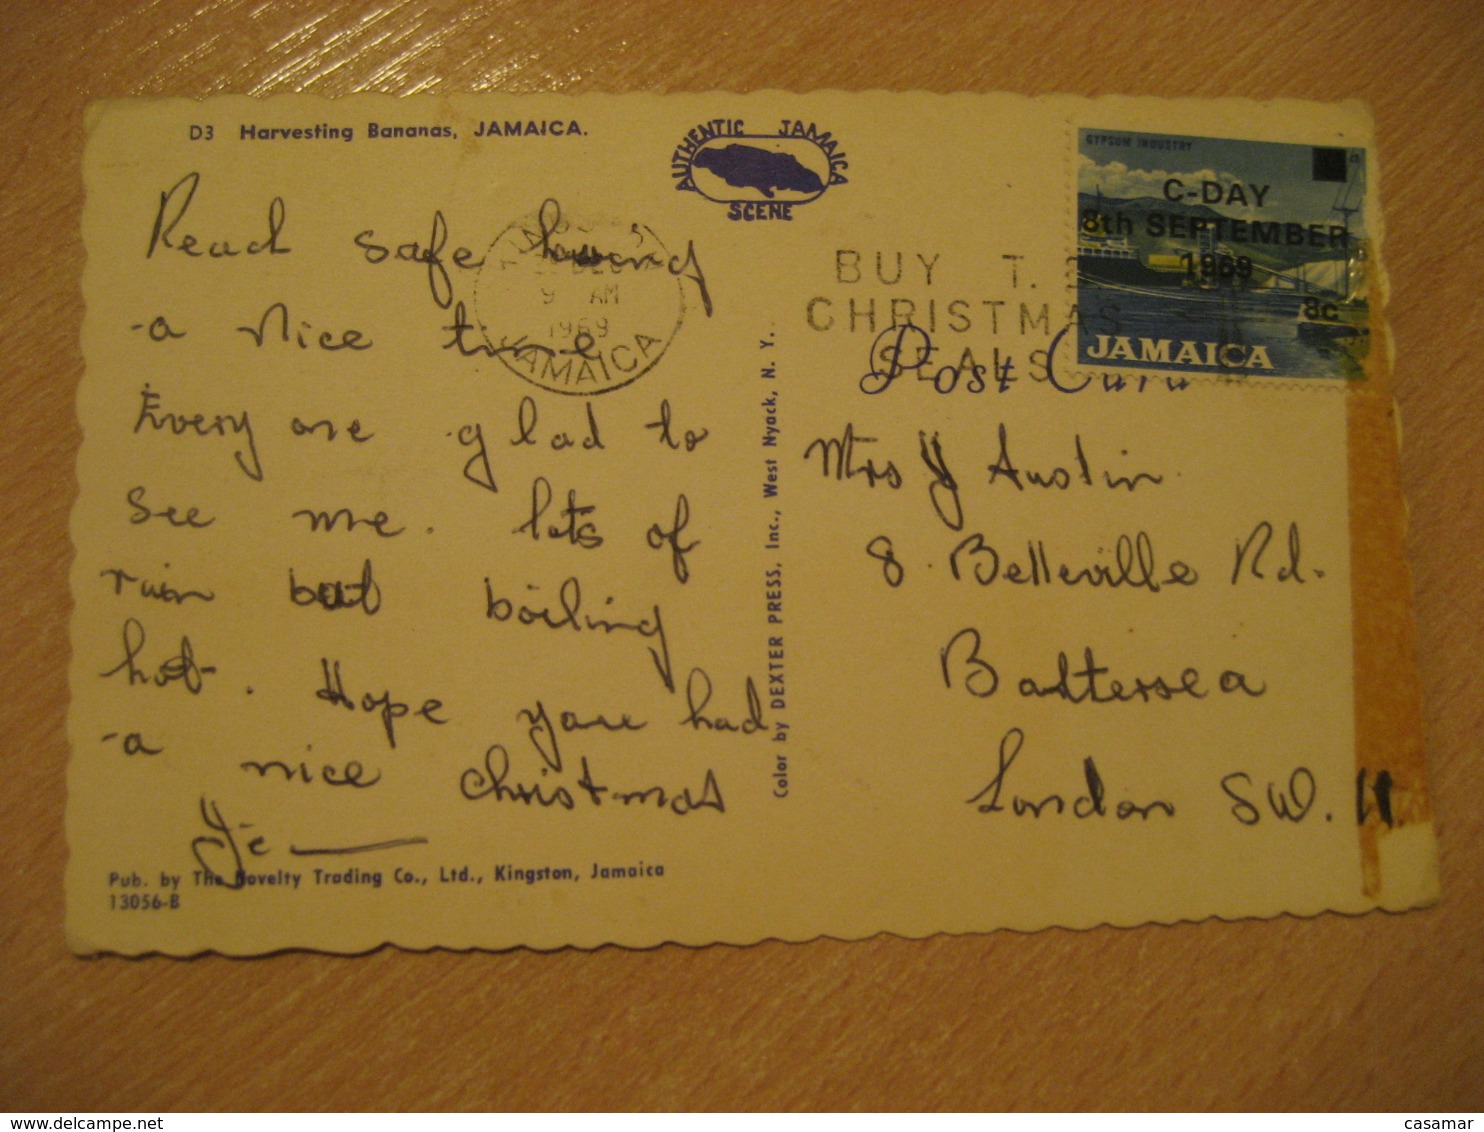 D3 Harvesting Bananas, JAMAICA.
AUTHENTIC JAMAICA
SCENE
Reach safe having
a nice time
Every one glad to
see me. lots of
rain but boiling
hot. Hope you had
a nice christmas
Pub. by The Novelty Trading Co., Ltd., Kingston, Jamaica
13056-B
9 AM
1969
JAMAICA
Color by DEXTER PRESS, Inc., West Nyack, N. Y.
BUY T.
CHRISTMAS
SEALS
Post Card
GYPSUM INDUSTRY
C-DAY
8th SEPTEMBER
1969
8c
JAMAICA
Mrs Y Austin
8. Belleville Rd.
Battersea
London SW. 11.
casamar